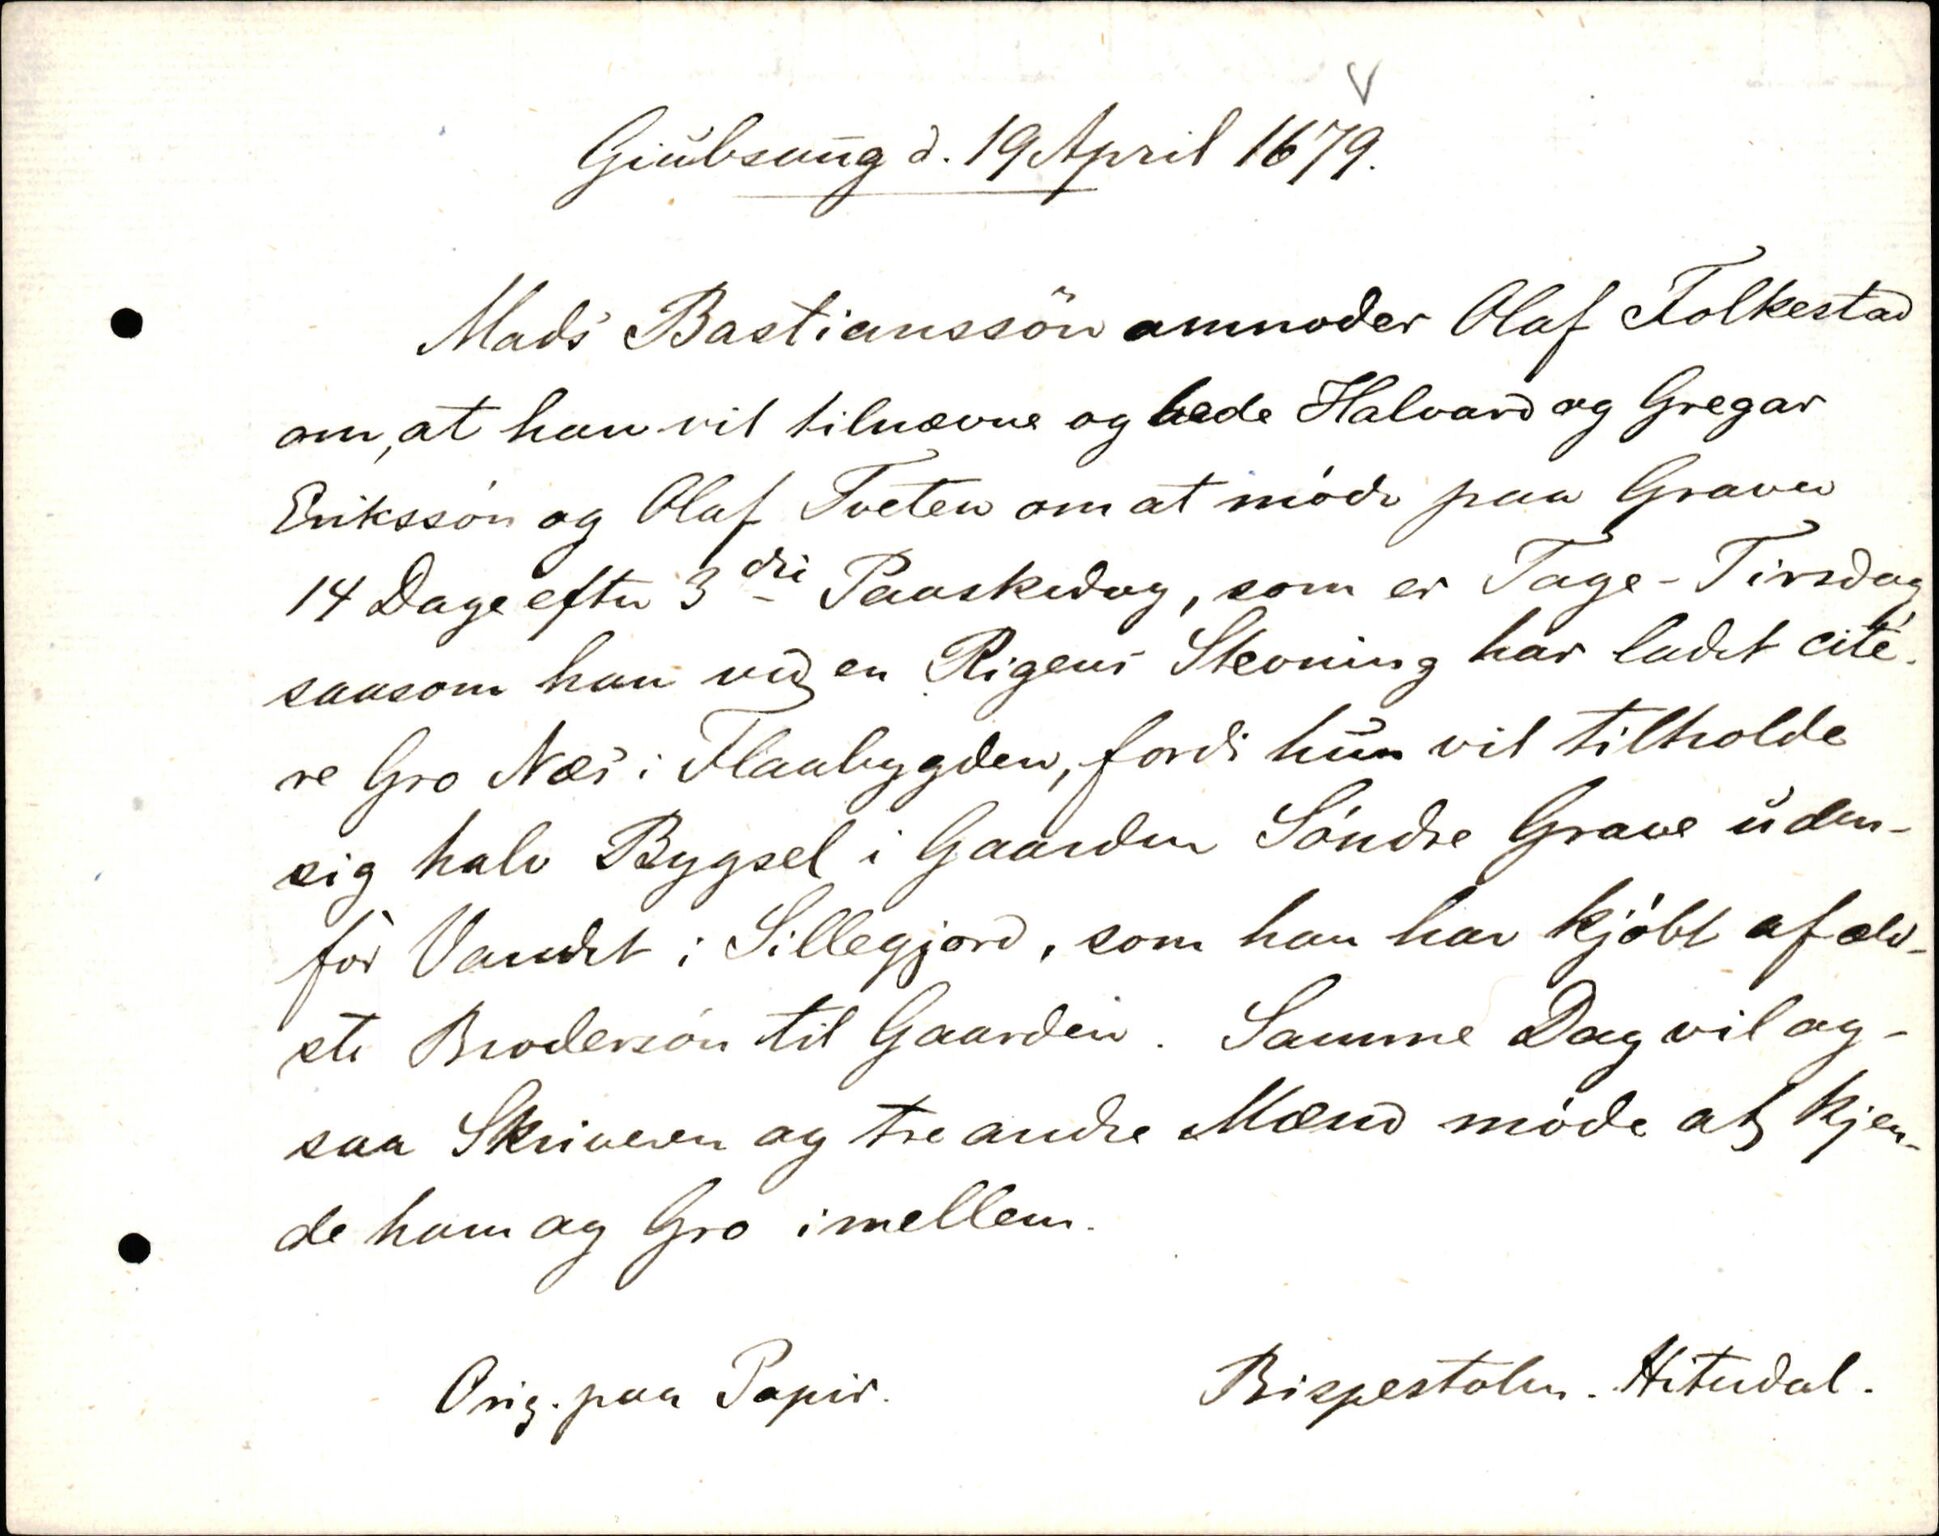 V
Giúbsúng d. 19 April 1679.
Mads Bastianssön anmoder Olaf Folkestad
om, at han vil tilnævne og bede Halvard og Gregar
Erikssön og Olaf Tveten om at möde paa Graver
14 Dage efter 3die Paaskedag, som er Tage-Tirsdag,
saasom han ved en Rigens Stevning har ladet cite-
re Gro Næs i Flaabygden, fordi hun vil tilholde
sig halv Bygsel i Gaarden Söndre Grave uden-
for Vandet i Sillegjord, som han har kjöbt af æld-
ste Brodersön til Gaarden. Samme Dag vil og-
saa Skriveren og tre andre Mænd möde at kjen-
de ham og Gro imellem.
Orig. paa Papir. Bispestolen. Hiterdal.